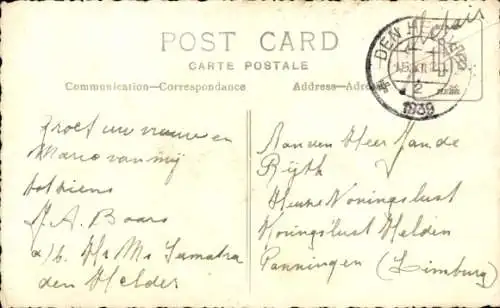 POST CARD
CARTE POSTALE
Communication—Correspondance
Address—
DEN HELDER
2
1939
Groet uw vrouw en
Marie van mij
tot ziens
A. Baars
a/b. Hr Ms Sumatra
den Helder
Aan den Heer van de
Rijth
Huize Koningslust
Koningslust Helden
Panningen (Limburg)